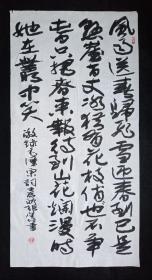 風雨送春歸飛雪迎春到已是
懸崖百丈冰猶有花枝俏也不爭
春只把春來報待到山花爛漫時
她在叢中笑